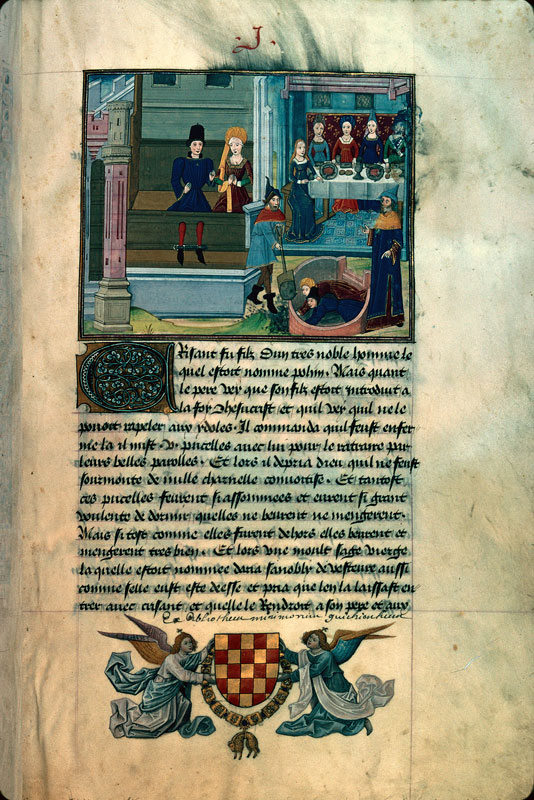 J.
Crisant fu filz dun tres noble homme le
quel estoit nomme polim. Mais quant
le pere vey que son filz estoit introduit a
la foy Jhesucrist et quil vey quil ne le
pouoit rapeler aux ydoles. Il commanda quil feust enfer
me la il mist .v. pucelles auec lui pour le retraire par
leurs belles parolles. Et lors il depria dieu quil ne feust
sourmonte de nulle charnelle conuoitise. Et tantost
ces pucelles feurent si assommees et eurent si grant
voulente de dormir quelles ne beurent ne mengerent.
Mais si tost comme elles furent dehors elles beurent et
mengerent tres bien. Et lors vne moult sage vierge
la quelle estoit nommee daria sanobly de vesteure aussi
comme selle eust este deesse et pria que len la laissast en
trer auec crisant et quelle le Rendroit a son pere et aux
Ex Bibliotheca minimorum